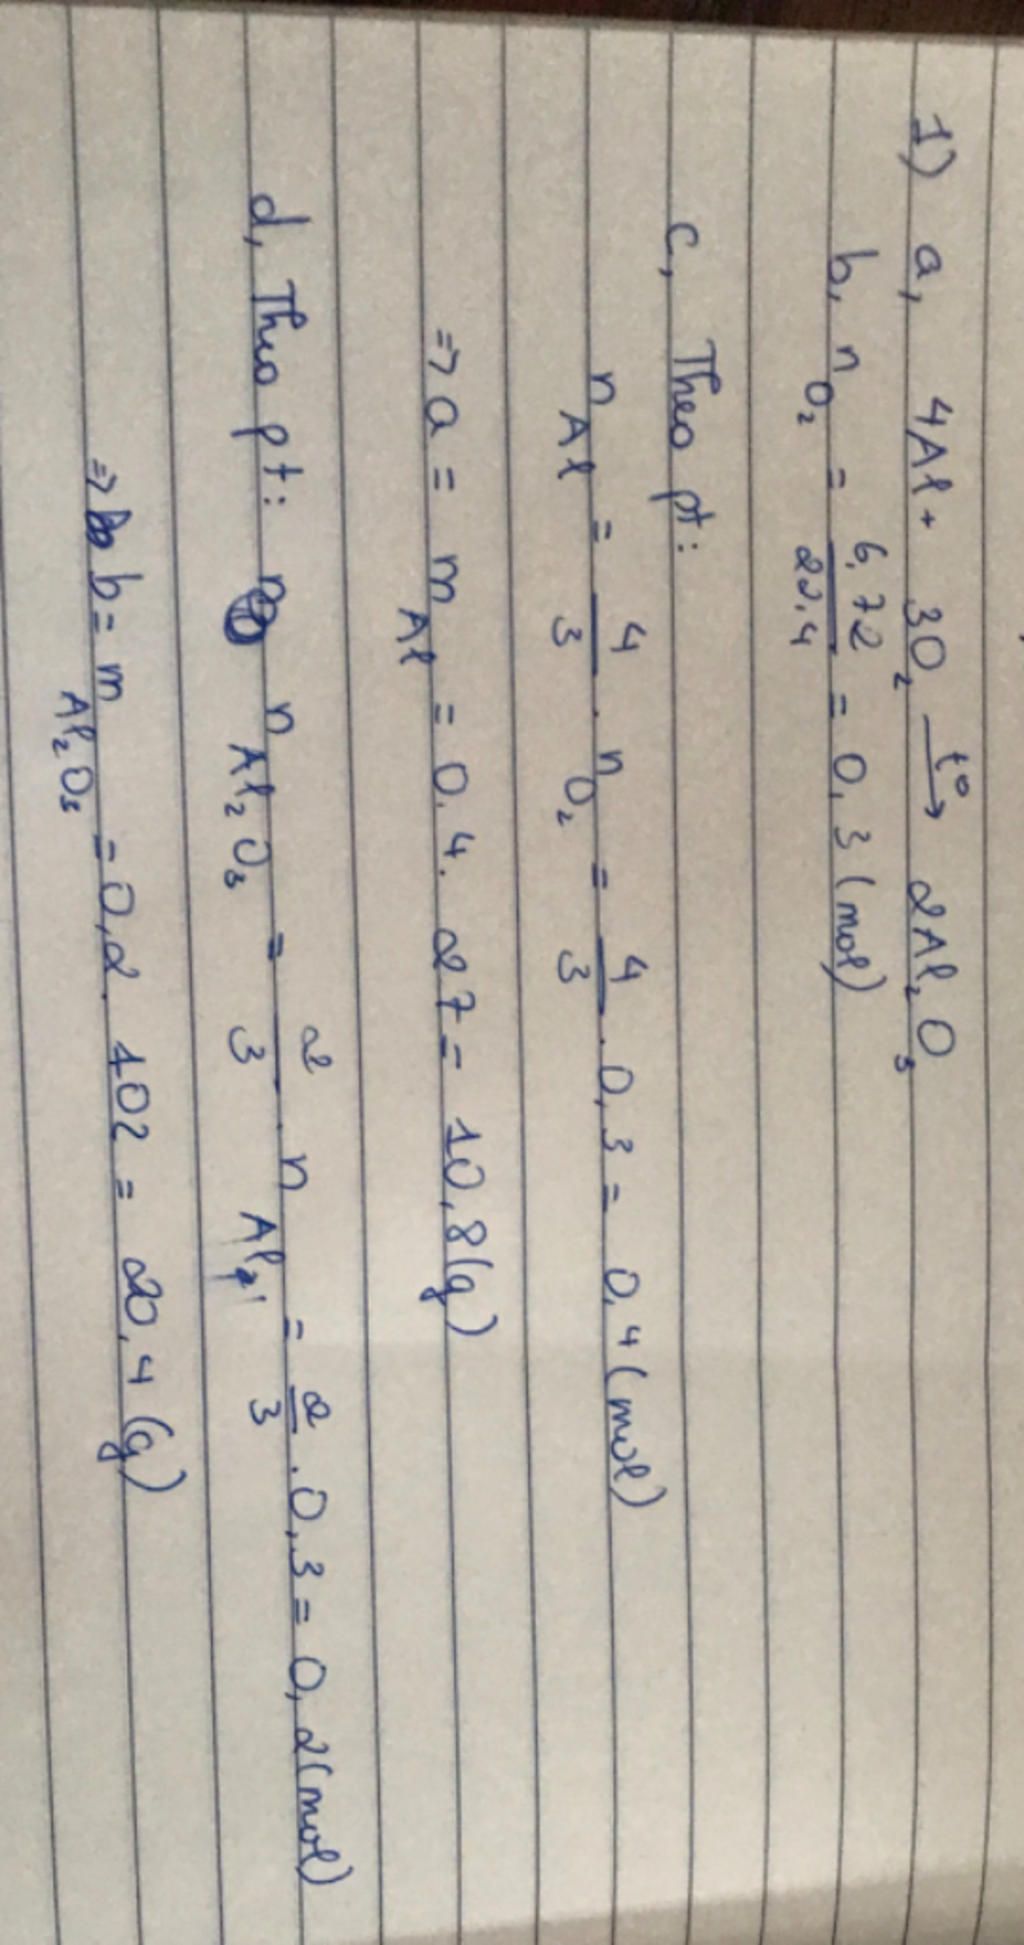 1) a, 4Al + 3O₂ —t°→ 2Al₂O₃
b, n O₂ = 6,72/22,4 = 0,3 (mol)
c, Theo pt:
n Al = 4/3 . n O₂ = 4/3 . 0,3 = 0,4 (mol)
=> a = m Al = 0,4 . 27 = 10,8 (g)
d, Theo pt: n Al₂O₃ = 2/3 . n Al = 2/3 . 0,3 = 0,2 (mol)
=> b = m Al₂O₃ = 0,2 . 102 = 20,4 (g)